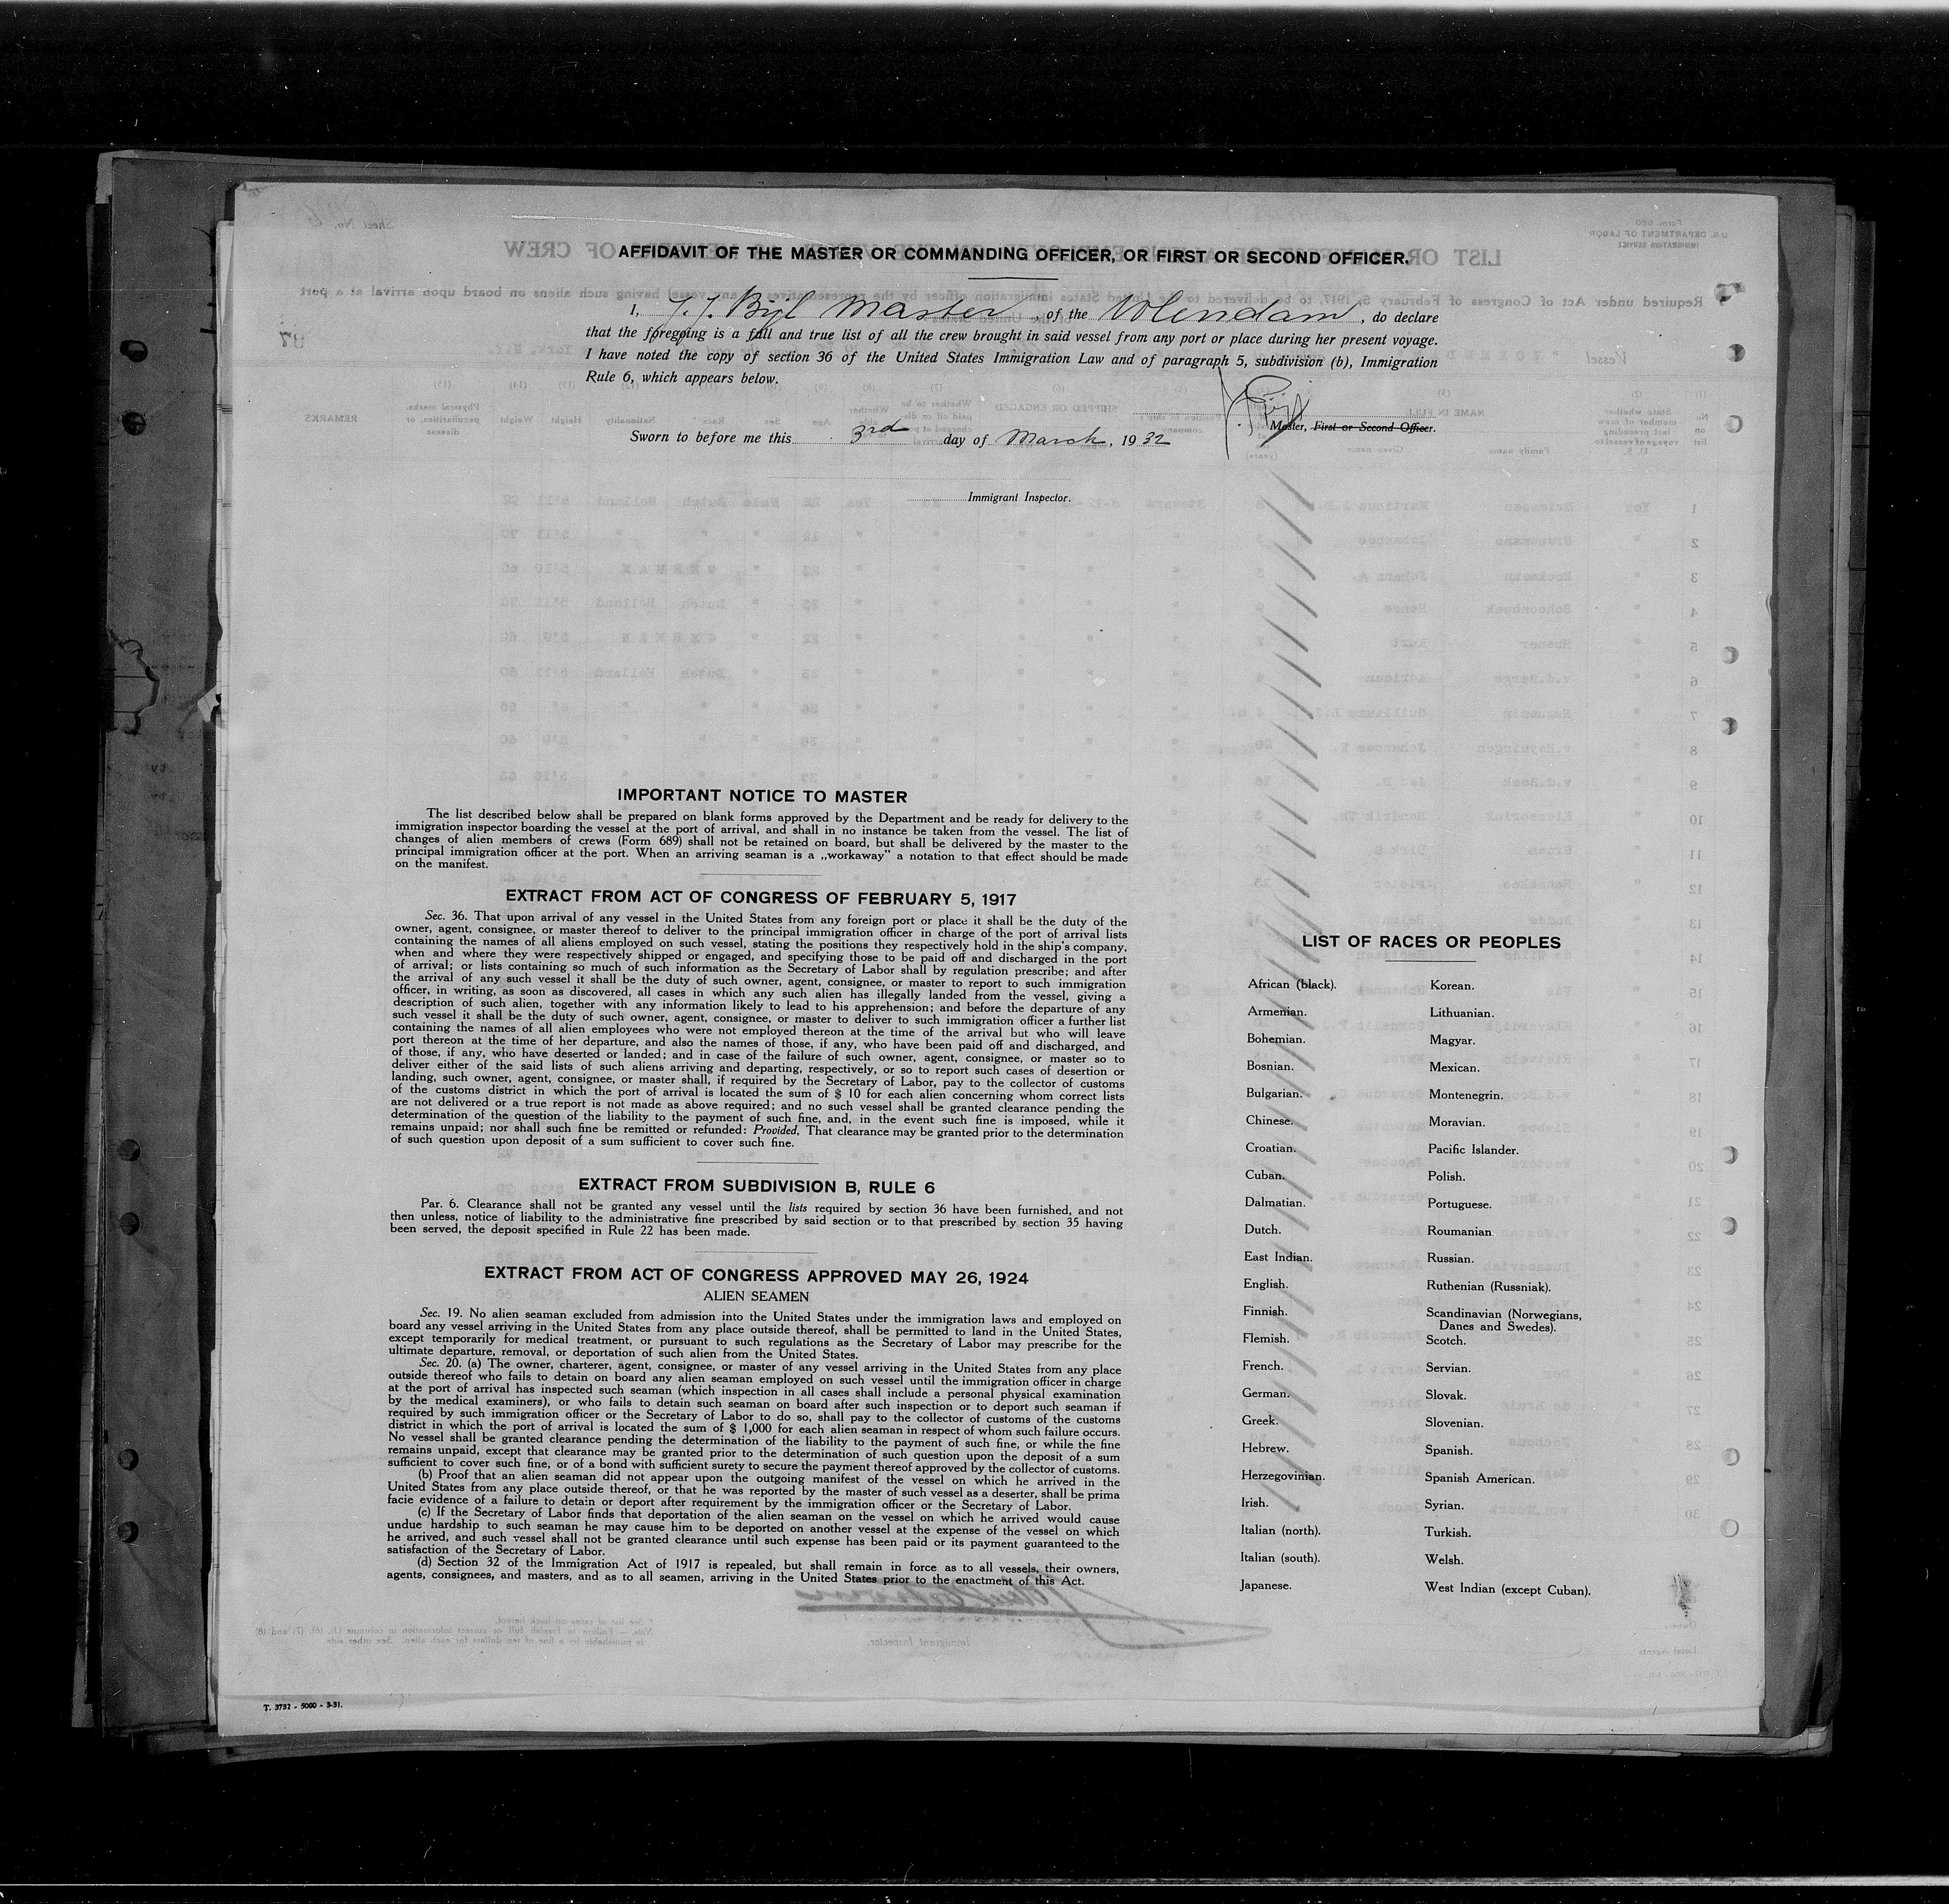 AFFIDAVIT OF THE MASTER OR COMMANDING OFFICER, OR FIRST OR SECOND OFFICER.
I, J. J. Bijl Master, of the Volendam, do declare
that the foregoing is a full and true list of all the crew brought in said vessel from any port or place during her present voyage.
I have noted the copy of section 36 of the United States Immigration Law and of paragraph 5, subdivision (b), Immigration
Rule 6, which appears below.
Master, First or Second Officer.
Sworn to before me this 3rd day of March, 1932
Immigrant Inspector.
IMPORTANT NOTICE TO MASTER
The list described below shall be prepared on blank forms approved by the Department and be ready for delivery to the
immigration inspector boarding the vessel at the port of arrival, and shall in no instance be taken from the vessel. The list of
changes of alien members of crews (Form 689) shall not be retained on board, but shall be delivered by the master to the
principal immigration officer at the port. When an arriving seaman is a „workaway” a notation to that effect should be made
on the manifest.
EXTRACT FROM ACT OF CONGRESS OF FEBRUARY 5, 1917
Sec. 36. That upon arrival of any vessel in the United States from any foreign port or place it shall be the duty of the
owner, agent, consignee, or master thereof to deliver to the principal immigration officer in charge of the port of arrival lists
containing the names of all aliens employed on such vessel, stating the positions they respectively hold in the ship's company,
when and where they were respectively shipped or engaged, and specifying those to be paid off and discharged in the port
of arrival; or lists containing so much of such information as the Secretary of Labor shall by regulation prescribe; and after
the arrival of any such vessel it shall be the duty of such owner, agent, consignee, or master to report to such immigration
officer, in writing, as soon as discovered, all cases in which any such alien has illegally landed from the vessel, giving a
description of such alien, together with any information likely to lead to his apprehension; and before the departure of any
such vessel it shall be the duty of such owner, agent, consignee, or master to deliver to such immigration officer a further list
containing the names of all alien employees who were not employed thereon at the time of the arrival but who will leave
port thereon at the time of her departure, and also the names of those, if any, who have been paid off and discharged, and
of those, if any, who have deserted or landed; and in case of the failure of such owner, agent, consignee, or master so to
deliver either of the said lists of such aliens arriving and departing, respectively, or so to report such cases of desertion or
landing, such owner, agent, consignee, or master shall, if required by the Secretary of Labor, pay to the collector of customs
of the customs district in which the port of arrival is located the sum of $ 10 for each alien concerning whom correct lists
are not delivered or a true report is not made as above required; and no such vessel shall be granted clearance pending the
determination of the question of the liability to the payment of such fine, and, in the event such fine is imposed, while it
remains unpaid; nor shall such fine be remitted or refunded: Provided, That clearance may be granted prior to the determination
of such question upon deposit of a sum sufficient to cover such fine.
EXTRACT FROM SUBDIVISION B, RULE 6
Par. 6. Clearance shall not be granted any vessel until the lists required by section 36 have been furnished, and not
then unless, notice of liability to the administrative fine prescribed by said section or to that prescribed by section 35 having
been served, the deposit specified in Rule 22 has been made.
EXTRACT FROM ACT OF CONGRESS APPROVED MAY 26, 1924
ALIEN SEAMEN
Sec. 19. No alien seaman excluded from admission into the United States under the immigration laws and employed on
board any vessel arriving in the United States from any place outside thereof, shall be permitted to land in the United States,
except temporarily for medical treatment, or pursuant to such regulations as the Secretary of Labor may prescribe for the
ultimate departure, removal, or deportation of such alien from the United States.
Sec. 20. (a) The owner, charterer, agent, consignee, or master of any vessel arriving in the United States from any place
outside thereof who fails to detain on board any alien seaman employed on such vessel until the immigration officer in charge
at the port of arrival has inspected such seaman (which inspection in all cases shall include a personal physical examination
by the medical examiners), or who fails to detain such seaman on board after such inspection or to deport such seaman if
required by such immigration officer or the Secretary of Labor to do so, shall pay to the collector of customs of the customs
district in which the port of arrival is located the sum of $ 1,000 for each alien seaman in respect of whom such failure occurs.
No vessel shall be granted clearance pending the determination of the liability to the payment of such fine, or while the fine
remains unpaid, except that clearance may be granted prior to the determination of such question upon the deposit of a sum
sufficient to cover such fine, or of a bond with sufficient surety to secure the payment thereof approved by the collector of customs.
(b) Proof that an alien seaman did not appear upon the outgoing manifest of the vessel on which he arrived in the
United States from any place outside thereof, or that he was reported by the master of such vessel as a deserter, shall be prima
facie evidence of a failure to detain or deport after requirement by the immigration officer or the Secretary of Labor.
(c) If the Secretary of Labor finds that deportation of the alien seaman on the vessel on which he arrived would cause
undue hardship to such seaman he may cause him to be deported on another vessel at the expense of the vessel on which
he arrived, and such vessel shall not be granted clearance until such expense has been paid or its payment guaranteed to the
satisfaction of the Secretary of Labor.
(d) Section 32 of the Immigration Act of 1917 is repealed, but shall remain in force as to all vessels, their owners,
agents, consignees, and masters, and as to all seamen, arriving in the United States prior to the enactment of this Act.
LIST OF RACES OR PEOPLES
African (black).
Armenian.
Bohemian.
Bosnian.
Bulgarian.
Chinese.
Croatian.
Cuban.
Dalmatian.
Dutch.
East Indian.
English.
Finnish.
Flemish.
French.
German.
Greek.
Hebrew.
Herzegovinian.
Irish.
Italian (north).
Italian (south).
Japanese.
Korean.
Lithuanian.
Magyar.
Mexican.
Montenegrin.
Moravian.
Pacific Islander.
Polish.
Portuguese.
Roumanian
Russian.
Ruthenian (Russniak).
Scandinavian (Norwegians,
Danes and Swedes).
Scotch.
Servian.
Slovak.
Slovenian.
Spanish.
Spanish American.
Syrian.
Turkish.
Welsh.
West Indian (except Cuban).
T. 3732 - 5000 - 3-31.